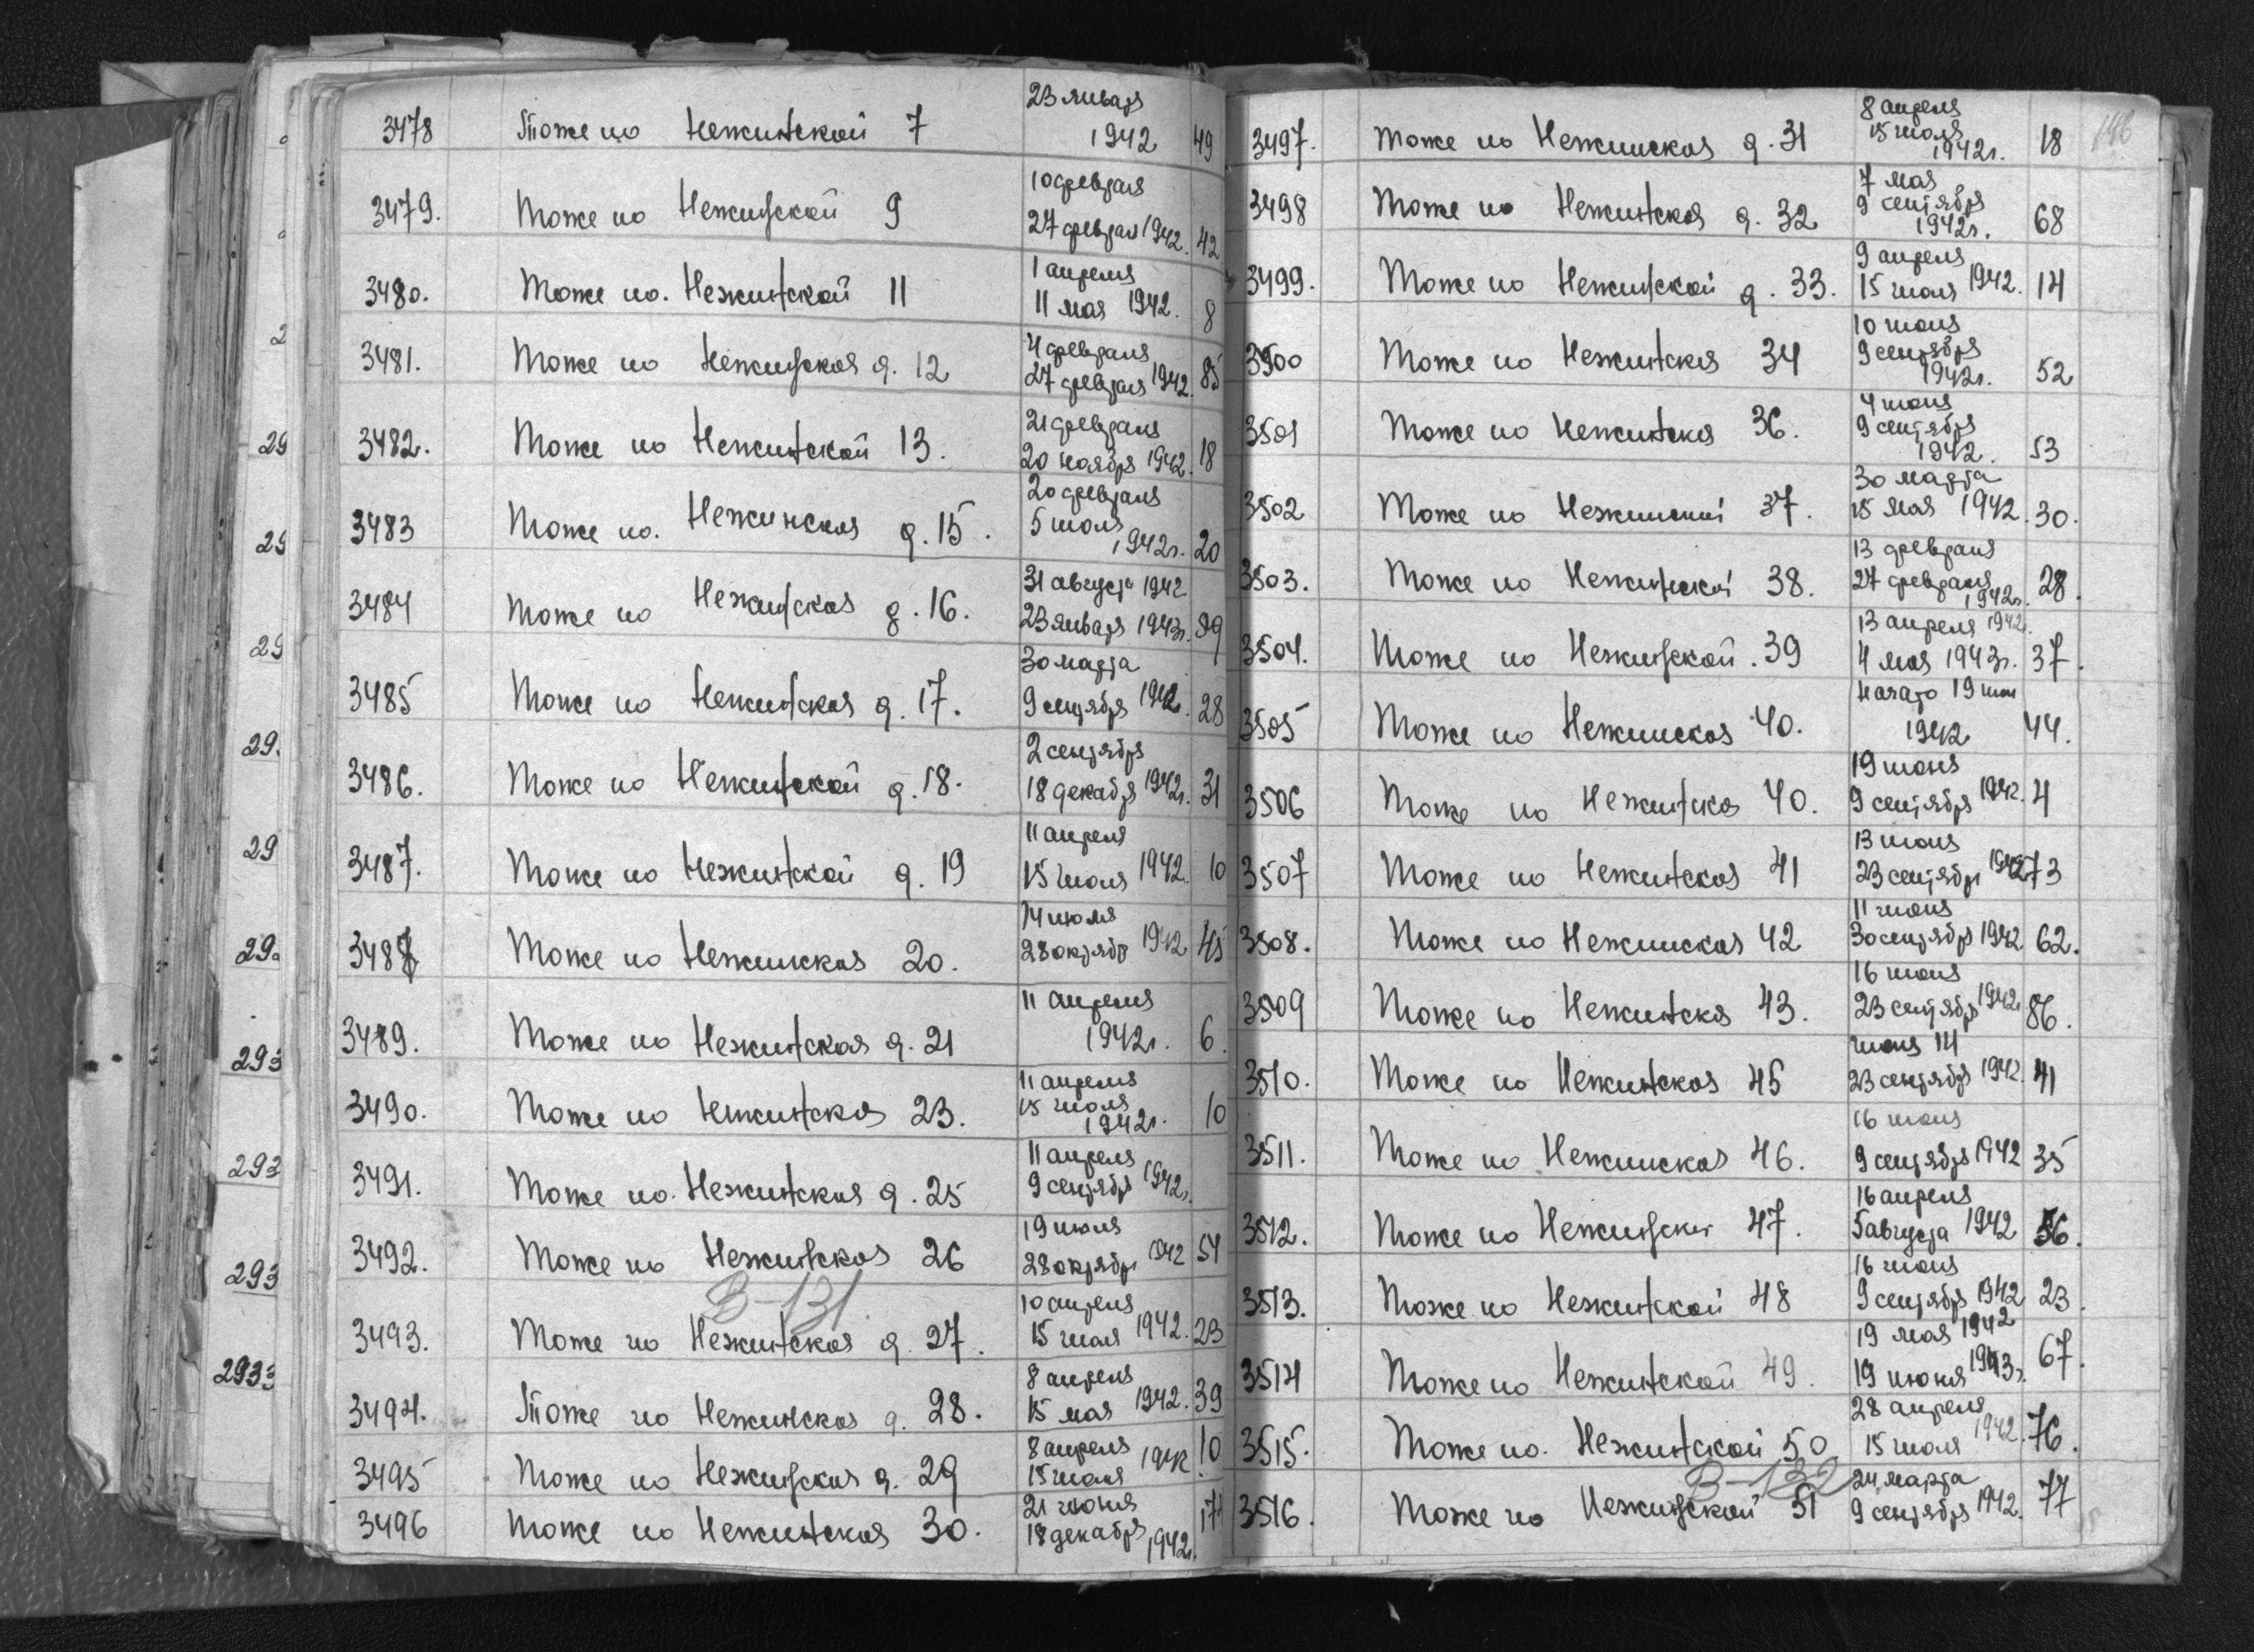 3478 Тоже по Нежинской 7 23 января
1942 49
3479. Тоже по Нежинской 9 10 февраля
27 феврал 1942. 42
3480. Тоже по. Нежинской 11 1 апреля
11 мая 1942. 8
3481. Тоже по Нежинская д. 12 4 февраля
27 февраля 1942. 85
3482. Тоже по Нежинской 13. 21 февраля
20 ноября 1942. 18
3483 Тоже по. Нежинская д. 15. 20 февраля
5 июля
1942г. 20
3484 Тоже по Нежинская д. 16. 31 августа 1942
23 января 1943г. 89
3485 Тоже по Нежинская д. 17. 30 марта
9 сентября 1942. 28
3486. Тоже по Нежинской д. 18. 2 сентября
18 декабря 1942г. 31
3487. Тоже по Нежинской д. 19 11 апреля
15 июля 1942. 10
3488 Тоже по Нежинская 20. 14 июля
28 октября 1942 45
3489. Тоже по Нежинская д. 21 11 апреля
1942г. 6.
3490. Тоже по Нежинская 23. 11 апреля
15 июля
1942г. 10
3491. Тоже по. Нежинская д. 25 11 апреля
9 сентября 1942г.
3492. Тоже по Нежинская 26 19 июля
28 октября 1942 54
В-131
3493. Тоже по Нежинская д. 27. 10 апреля
15 июля 1942. 23
3494. Тоже по Нежинская д. 28. 8 апреля
15 мая 1942. 39
3495 Тоже по Нежинская д. 29 8 апреля
15 июля 1942 10
3496 Тоже по Нежинская 30. 21 июня
18 декабря 1942г. 17
3497. Тоже по Нежинская д. 31 8 апреля
15 июля
1942г. 18
146
3498 Тоже по Нежинская д. 32 7 мая
9 сентября
1942г. 68
3499. Тоже по Нежинской д. 33. 9 апреля
15 июля 1942. 14
3500 Тоже по Нежинская 34 10 июля
9 сентября
1942г. 52
3501 Тоже по Нежинская 36. 4 июля
9 сентября
1942. 53
3502 Тоже по Нежинской 37. 30 марта
15 мая 1942. 30.
3503. Тоже по Нежинской 38. 13 февраля
27 февраля
1942г. 28.
3504. Тоже по Нежинской. 39 13 апреля 1942г.
4 мая 1943г. 37.
3505 Тоже по Нежинская 40. начато 19 июн
1942 44.
3506 Тоже по Нежинска 40. 19 июня
9 сентября 1942. 4
3507 Тоже по Нежинская 41 13 июля
23 сентября 1942 73
3508. Тоже по Нежинская 42 11 июля
30 сентября 1942. 62.
3509 Тоже по Нежинска 43. 16 июля
23 сентября 1942 86.
3510. Тоже по Нежинская 45 июля 14
23 сентября 1942. 41
3511. Тоже по Нежинская 46. 16 июля
9 сентября 1942 35
3512. Тоже по Нежинская 47. 16 апреля
5 августа 1942 56.
3513. Тоже по Нежинской 48 16 июля
9 сентября 1942 23.
3514 Тоже по Нежинской 49. 19 мая 1942
19 июня 1943г. 67.
3515. Тоже по. Нежинской 50 28 апреля
15 июля 1942. 76.
В-132
3516. Тоже по Нежинской 51 24 марта
9 сентября 1942. 77
29
29
29
29.
29
29
293
293
293
2933